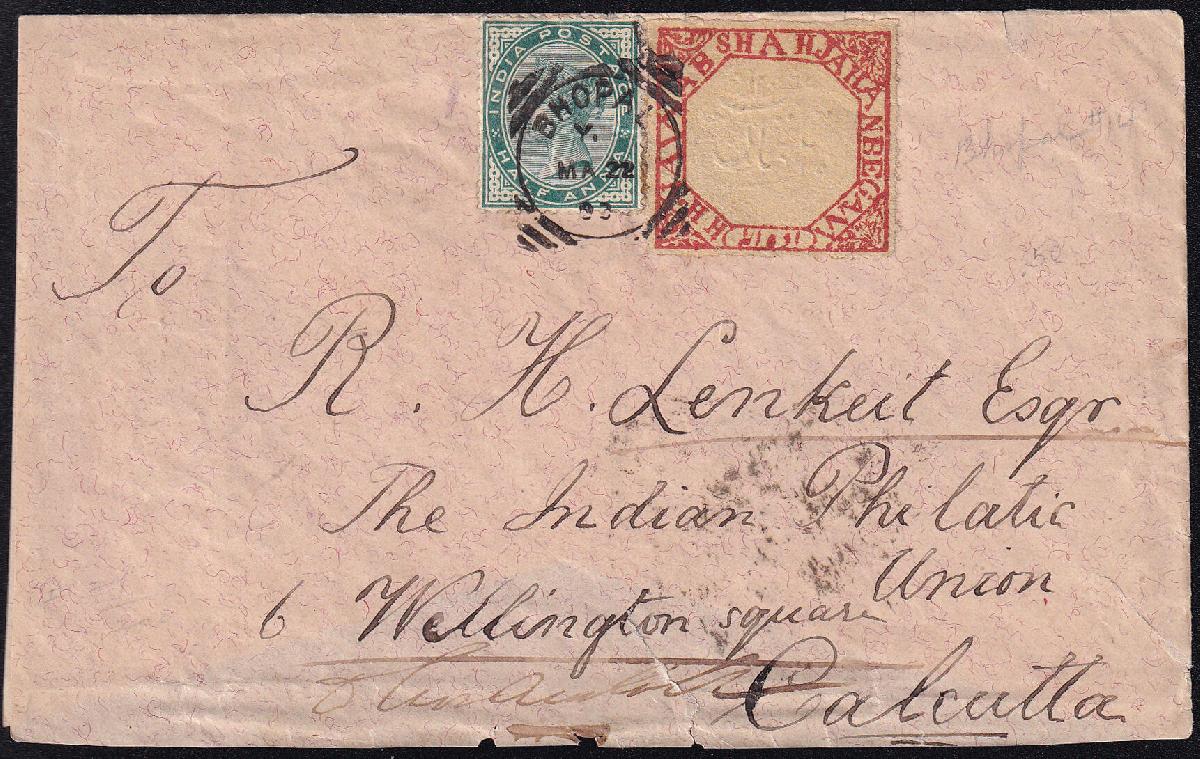 INDIA POSTAGE
HALF ANNA
BHOPAL
L.
MA 22
H H NAWAB SHAH JAHAN BEGAM
To
R. H. Lenkeit Esqr
The Indian Philatic
Union
6 Wellington square
Calcutta